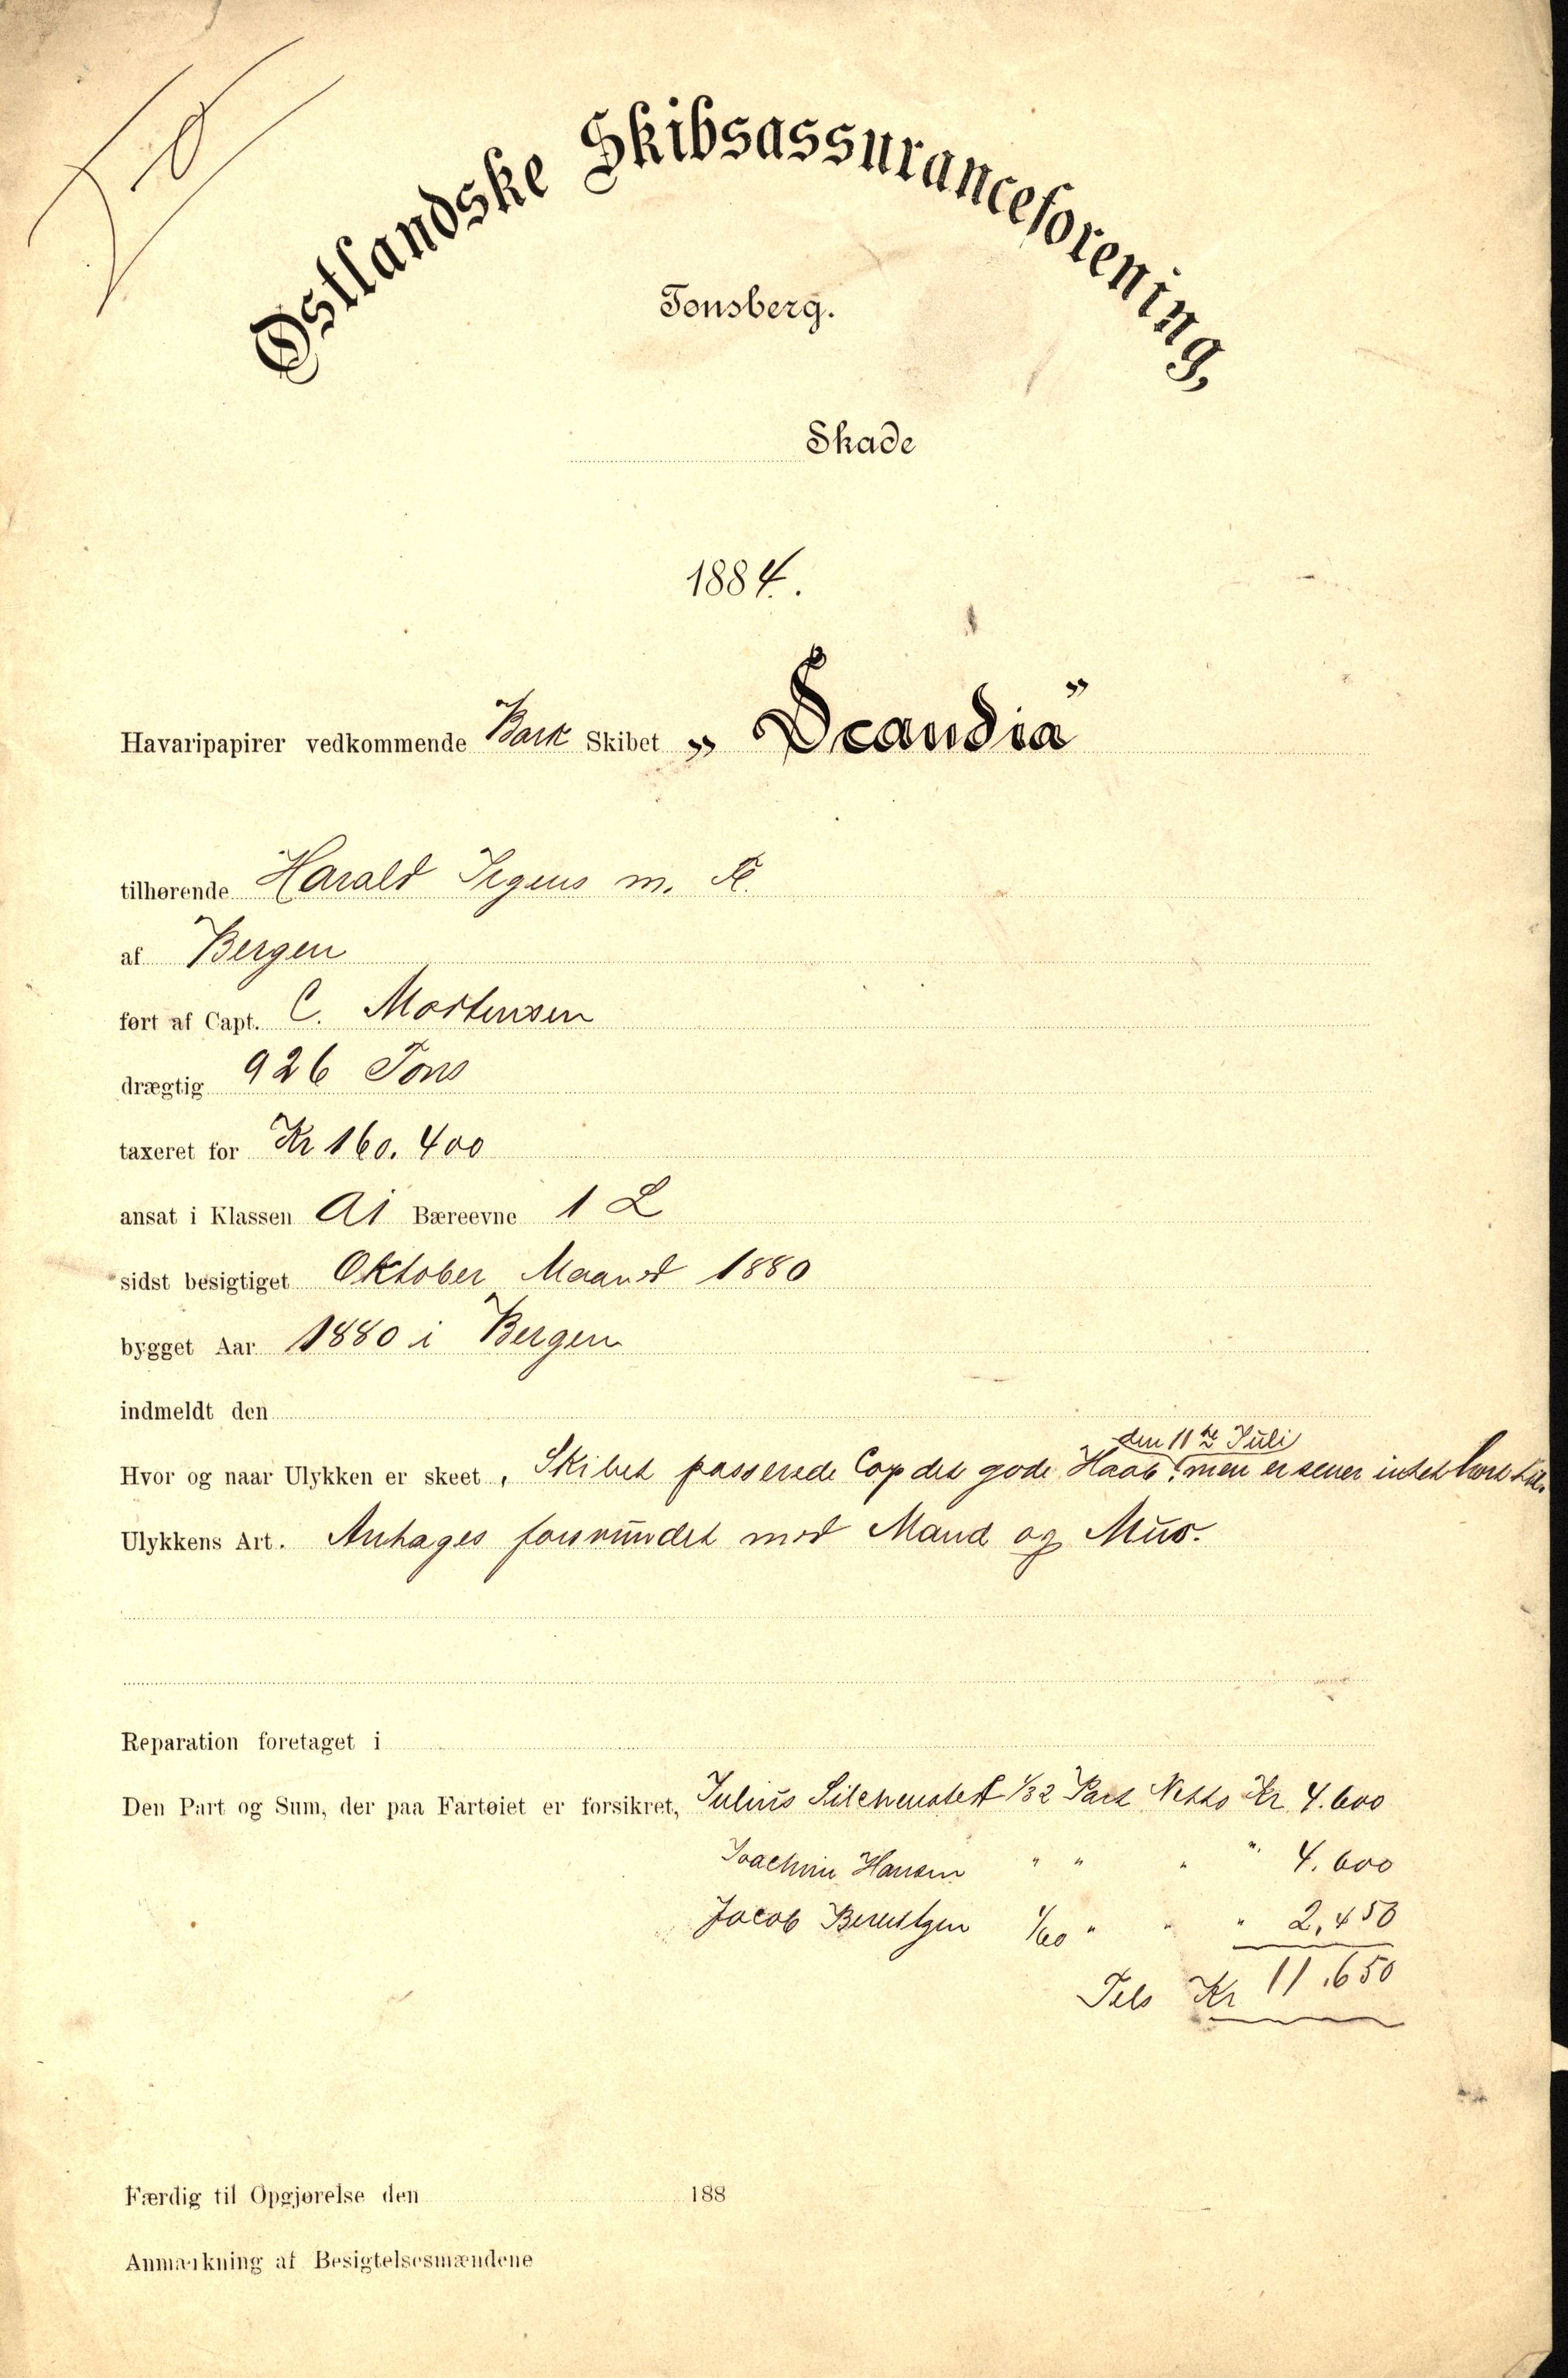 Østlandske Skibsassuranceforening,
Tønsberg.
Skade
1884.
Havaripapirer vedkommende Bark Skibet „Scandia”
tilhørende Harald Irgens m. Fl.
af Bergen
ført af Capt. C. Mortensen
drægtig 926 Tons
taxeret for Kr 160.400
ansat i Klassen A1 Bæreevne 1 L
sidst besigtiget Oktober Maaned 1880
bygget Aar 1880 i Bergen
indmeldt den
den 11te Juli
Hvor og naar Ulykken er skeet, Skibet passerede Cap det gode Haab, men er sener intet hørt til.
Ulykkens Art. Antages forsvundet med Mand og Mus.
Reparation foretaget i
Den Part og Sum, der paa Fartøiet er forsikret, Julius 1/32 Part Netto Kr 4.600
Joachim Hansen " " " " 4.600
Jacob 1/60 " " " 2,450
Tils Kr 11.650
Færdig til Opgjørelse den 188
Anmærkning af Besigtelsesmændene